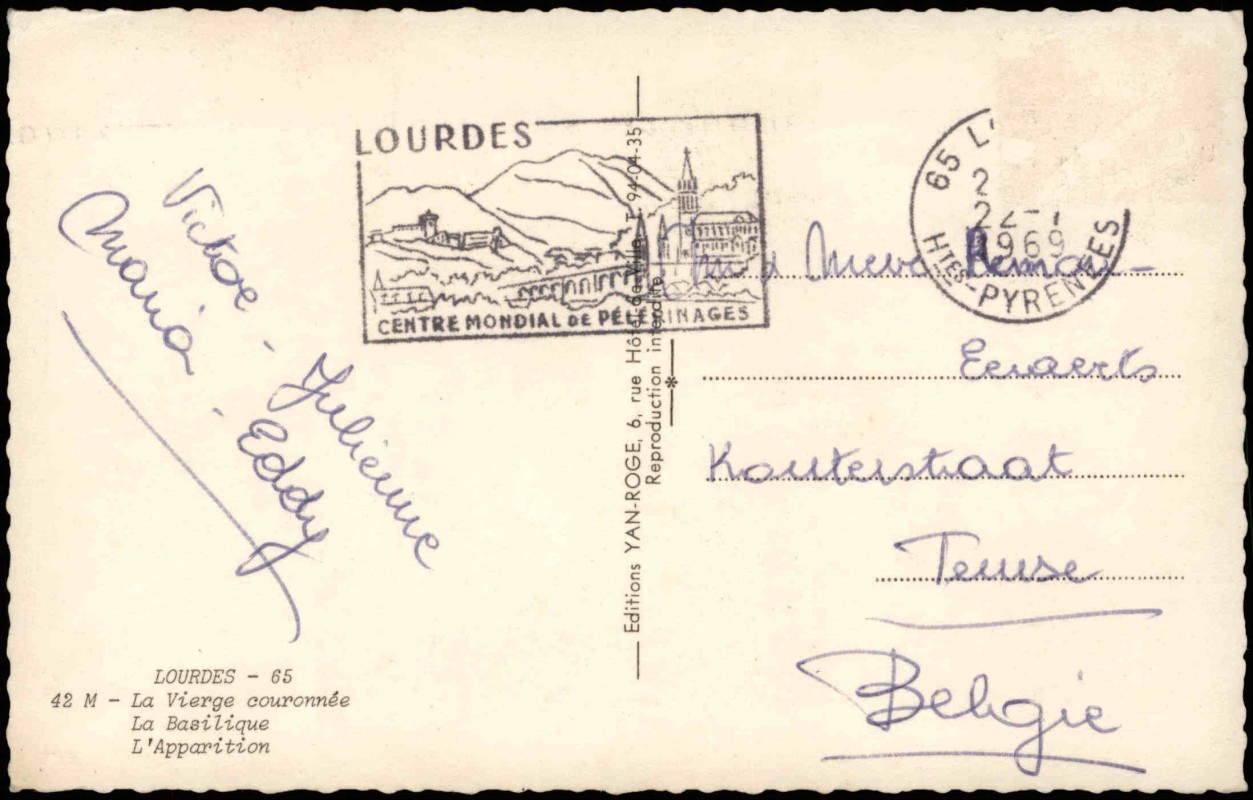 LOURDES
CENTRE MONDIAL DE PÉLERINAGES
65 L
22-7
1969
HTES-PYRENEES
Victor - Julienne
Maria - Eddy
LOURDES - 65
42 M - La Vierge couronnée
La Basilique
L'Apparition
Editions YAN-ROGE, 6, rue Hôtel de Ville T. 94-04-35
Reproduction interdite
Mevr
Eewaerts
Kouterstraat
Temse
België